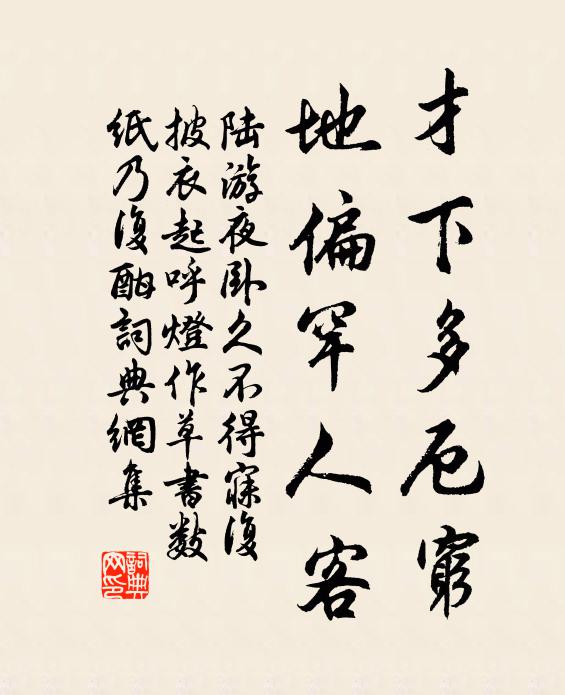 才下多厄窮
地偏罕人客
陆游夜卧久不得寐復
披衣起呼燈作草書数
紙乃復酣詞典網集
詞典网印